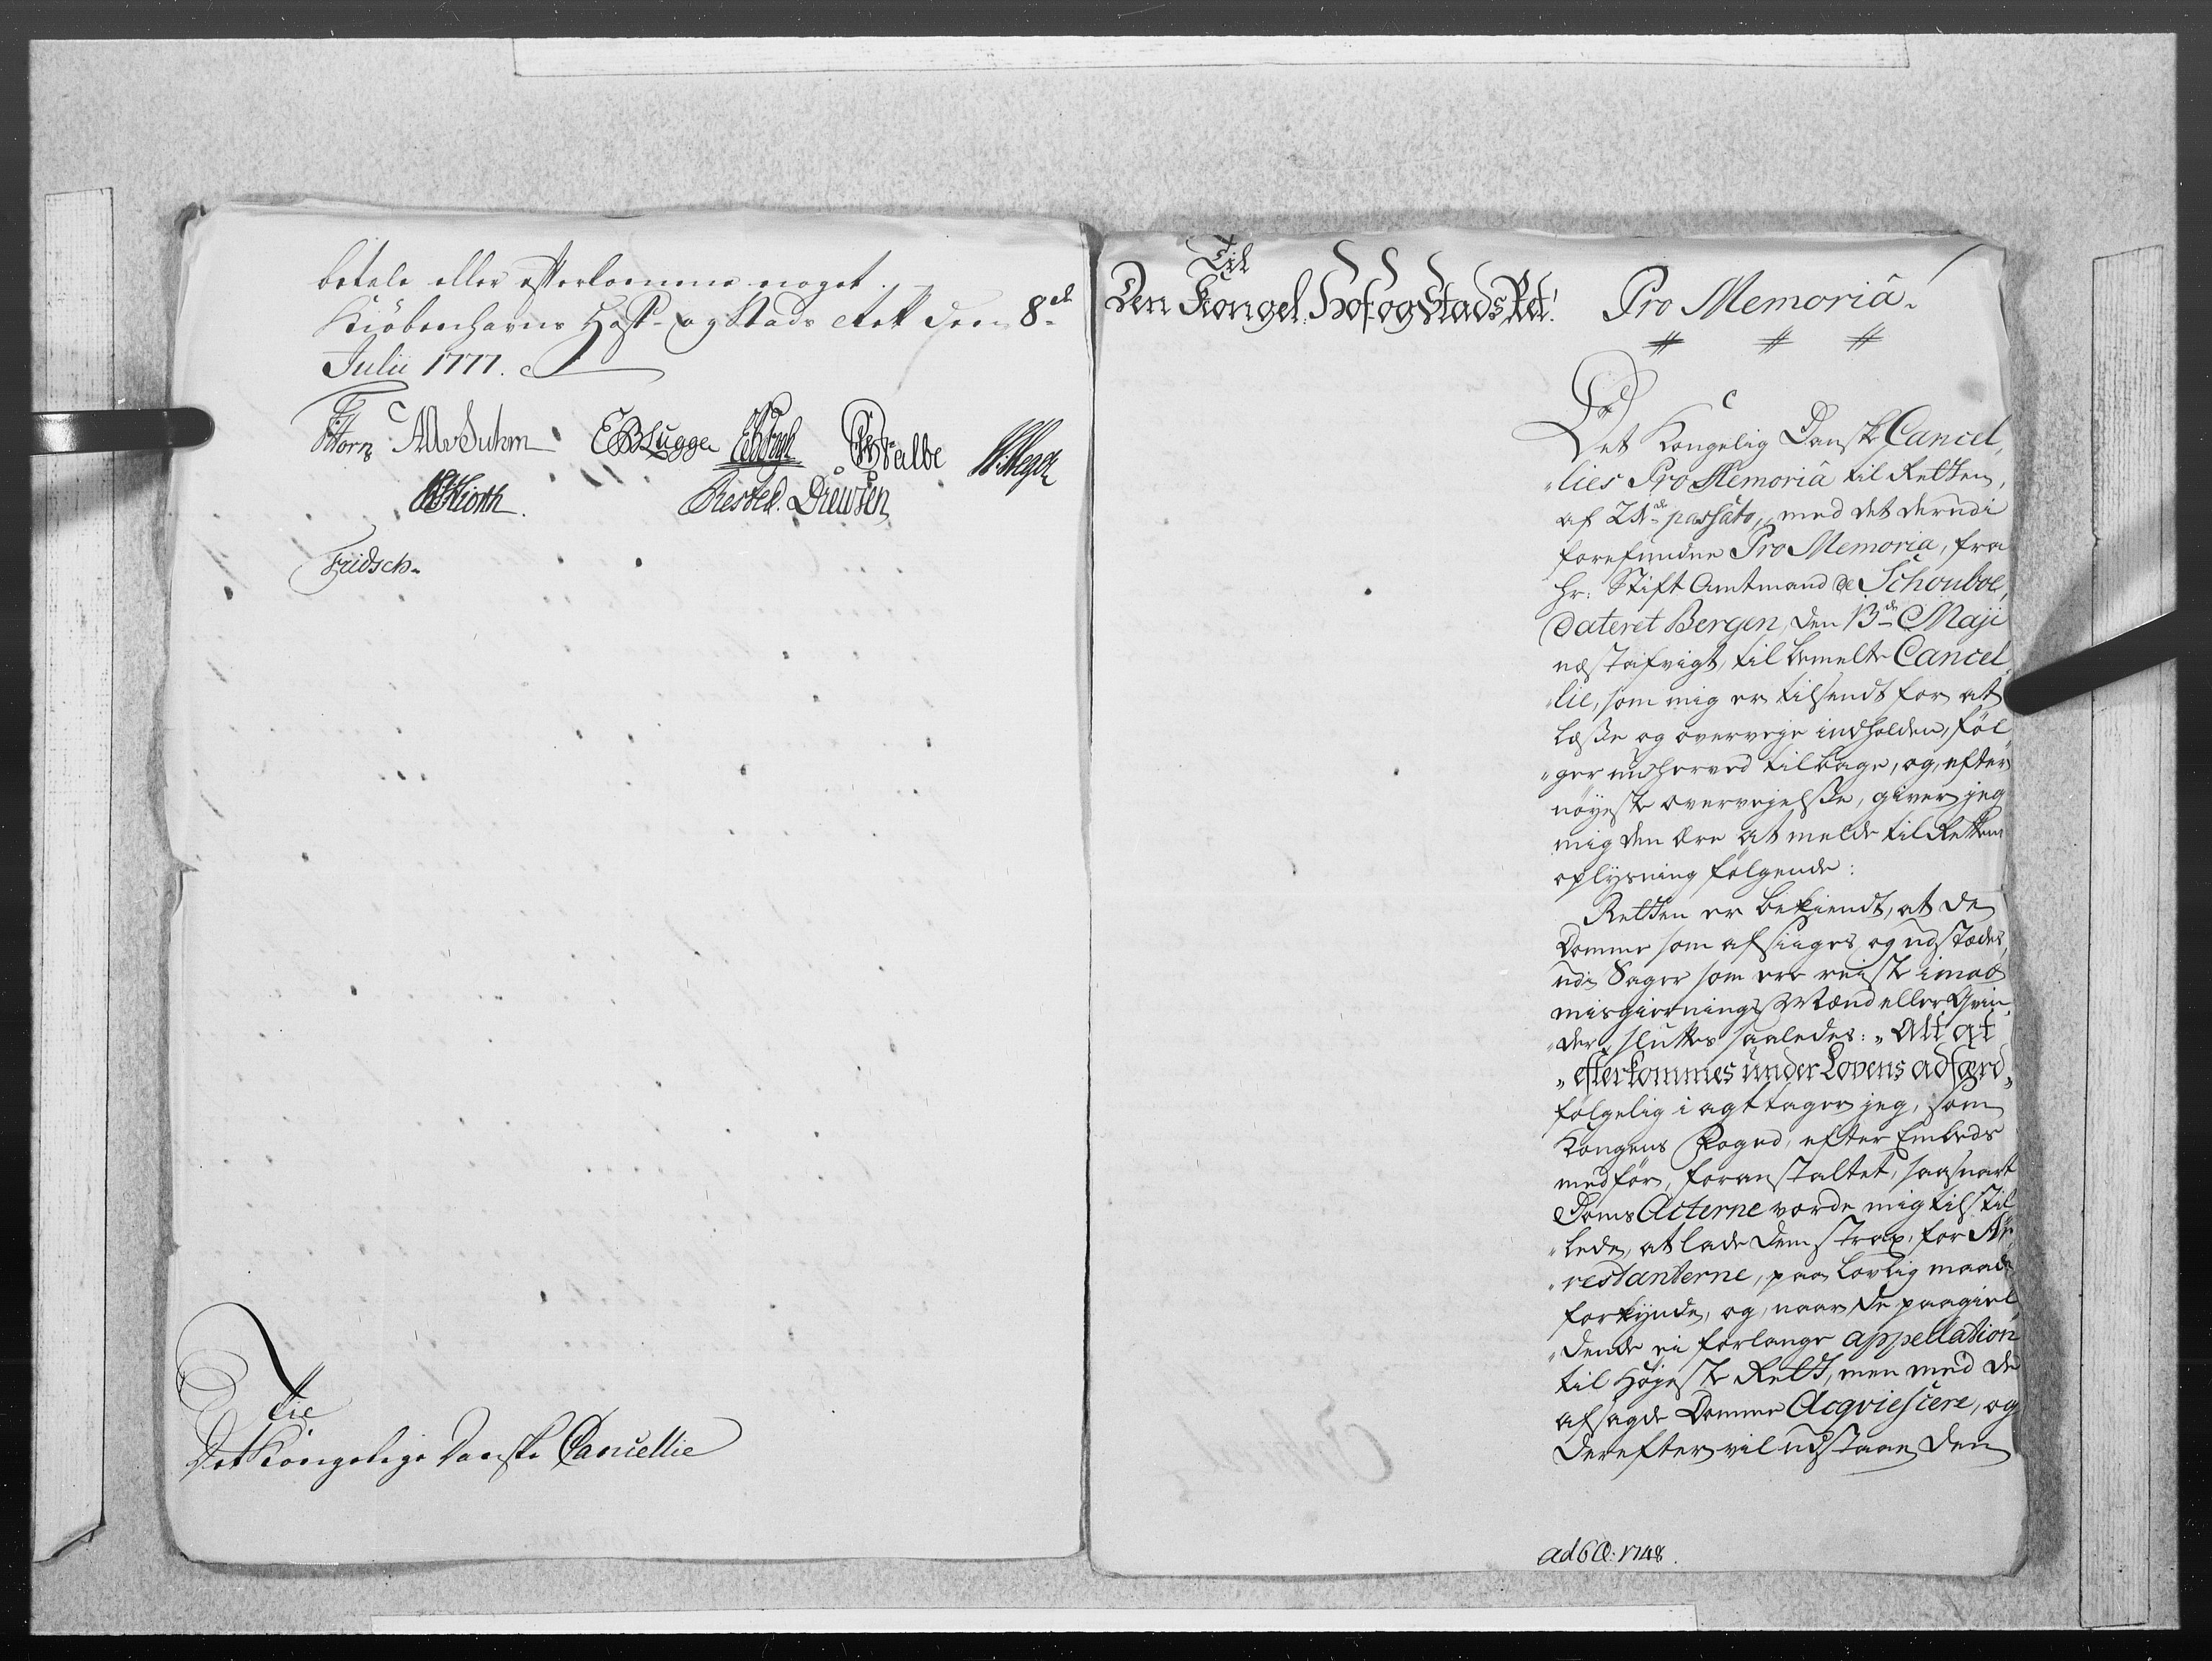 betale eller efterkomme noget.
Kiöbenhavns Hoff- og Stads Rett den 8de
Julii 1777.
Horn AMvSuhm EBLugge Balbe
Kiorth. Krested. Drewsen
Fridsch
Til
Det Kongelige Danske Cancellie
Til
Den Kongel. Hof og Stads Ret!
Pro Memoriâ.
Det Kongelig Danske Cancel¬
„lies Pro Memoriâ til Retten,
af 21de passato, med det derudi
forefundne Pro Memoria, fra
Hr. Stift Amtmand de Schouboe,
dateret Bergen, den 13de Maji
næstafvigt, til bemelte Cancel¬
„lie, som mig er tilsendt for at
læsse og overveje indholden, föl¬
„ger nu herved tilbage, og, efter
nöyeste overvejelsse, giver jeg
mig den Ære at melde til Rettens
oplysning fölgende:
Retten er bekiendt, at de
Domme som afsiiges og udstædes
udi Sager som ere reiste imod
misgiernings Mænd eller Qvin¬
„der, sluttes saaledes: „Alt at
„efterkommes under Lovens adfærd„
fölgelig i agttager jeg, som
Kongens Foged, efter Embeds
medför, foranstaltet, saasnart
Doms Acterne vorde mig tilstil¬
„lede, at lade dem strax, for Ar¬
„restanterne, paa lovlig maade
forkynde, og, naar de paagiel¬
„dende ei forlange appellation
til Höjeste Rett, men med de
afsagde Domme Acqviescere, og
derefter vil udstaae den
ad 6 Q: 1748.